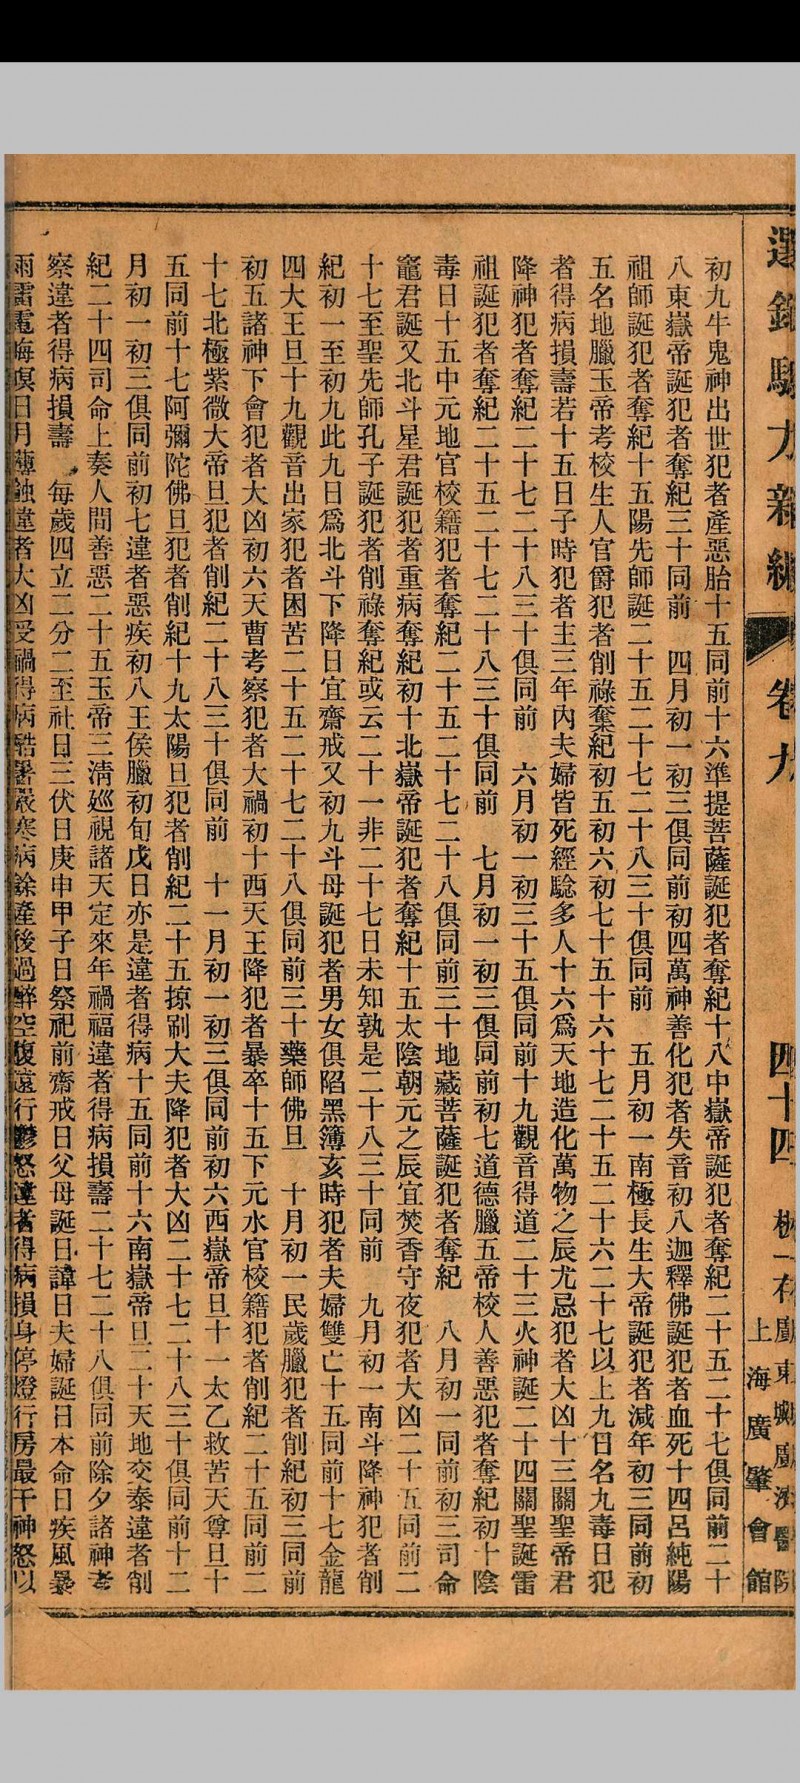 選錄驗方新編 卷九 四十四
上海廣肇會館
初九牛鬼神出世犯者產惡胎十五同前十六準提菩薩誕犯者奪紀十八中嶽帝誕犯者奪紀二十五二十七俱同前二十
八東嶽帝誕犯者奪紀三十同前 四月初一初三俱同前初四萬神善化犯者失音初八迦釋佛誕犯者血死十四呂純陽
祖師誕犯者奪紀十五陽先師誕二十五二十七二十八三十俱同前 五月初一南極長生大帝誕犯者減年初三同前初
五名地臘玉帝考校生人官爵犯者削祿奪紀初五初六初七十五十六十七二十五二十六二十七以上九日名九毒日犯
者得病損壽若十五日子時犯者主三年內夫婦皆死經驗多人十六爲天地造化萬物之辰尤忌犯者大凶十三關聖帝君
降神犯者奪紀二十七二十八三十俱同前 六月初一初三十五俱同前十九觀音得道二十三火神誕二十四關聖誕雷
祖誕犯者奪紀二十五二十七二十八三十俱同前 七月初一初三俱同前初七道德臘五帝校人善惡犯者奪紀初十陰
毒日十五中元地官校籍犯者奪紀二十五二十七二十八俱同前三十地藏菩薩誕犯者奪紀 八月初一同前初三司命
竈君誕又北斗星君誕犯者重病奪紀初十北嶽帝誕犯者奪紀十五太陰朝元之辰宜焚香守夜犯者大凶二十五同前二
十七至聖先師孔子誕犯者削祿奪紀或云二十一非二十七日未知孰是二十八三十同前 九月初一南斗降神犯者削
紀初一至初九此九日爲北斗下降日宜齋戒又初九斗母誕犯者男女俱陷黑簿亥時犯者夫婦雙亡十五同前十七金龍
四大王旦十九觀音出家犯者困苦二十五二十七二十八俱同前三十藥師佛旦 十月初一民歲臘犯者削紀初三同前
初五諸神下會犯者大凶初六天曹考察犯者大禍初十西天王降犯者暴卒十五下元水官校籍犯者削紀二十五同前二
十七北極紫微大帝旦犯者削紀二十八三十俱同前 十一月初一初三俱同前初六西嶽帝旦十一太乙救苦天尊旦十
五同前十七阿彌陀佛旦犯者削紀十九太陽旦犯者削紀二十五掠刷大夫降犯者大凶二十七二十八三十俱同前十二
月初一初三俱同前初七違者惡疾初八王侯臘初旬戊日亦是違者得病十五同前十六南嶽帝旦二十天地交泰違者削
紀二十四司命上奏人間善惡二十五玉帝三淸廵視諸天定來年禍福違者得病損壽二十七二十八俱同前除夕諸神考
察違者得病損壽 每歲四立二分二至社日三伏日庚申甲子日祭祀前齋戒日父母誕日諱日夫婦誕日本命日疾風暴
雨雷電晦暝日月薄蝕違者大凶受禍得病酷暑嚴寒病餘產後過醉空腹遠行鬱怒違者得病損身停燈行房最干神怒以